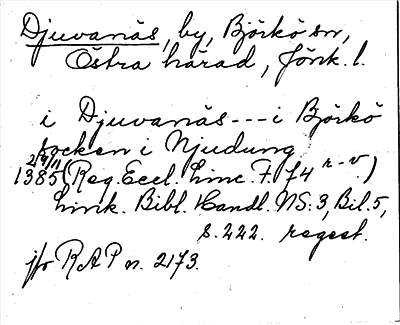 Djuvanäs, by, Björkö sn,
Östra härad, Jönk. l.
i Djuvanäs---i Björkö
socken i Njudung
2/4 11
1385 (Reg. Eccl. Linc. F. 74 r-v.)
Link. Bibl. Handl. NS: 3, Bil. 5,
s. 222. regest.
jfr RAP n. 2173.